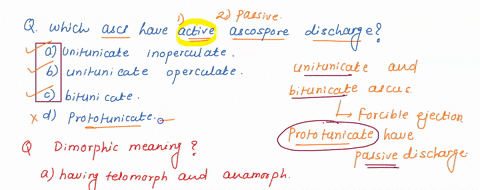 1) 2) Passive.
Q. Which asci have active ascospore discharge?
a) Unitunicate inoperculate.
b) unitunicate operculate.
c) bitunicate.
x d) Prototunicate.
unitunicate and
bitunicate ascus
↳ Forcible ejection
Prototunicate have
passive discharge
Q Dimorphic meaning?
a) having telomorph and anamorph.